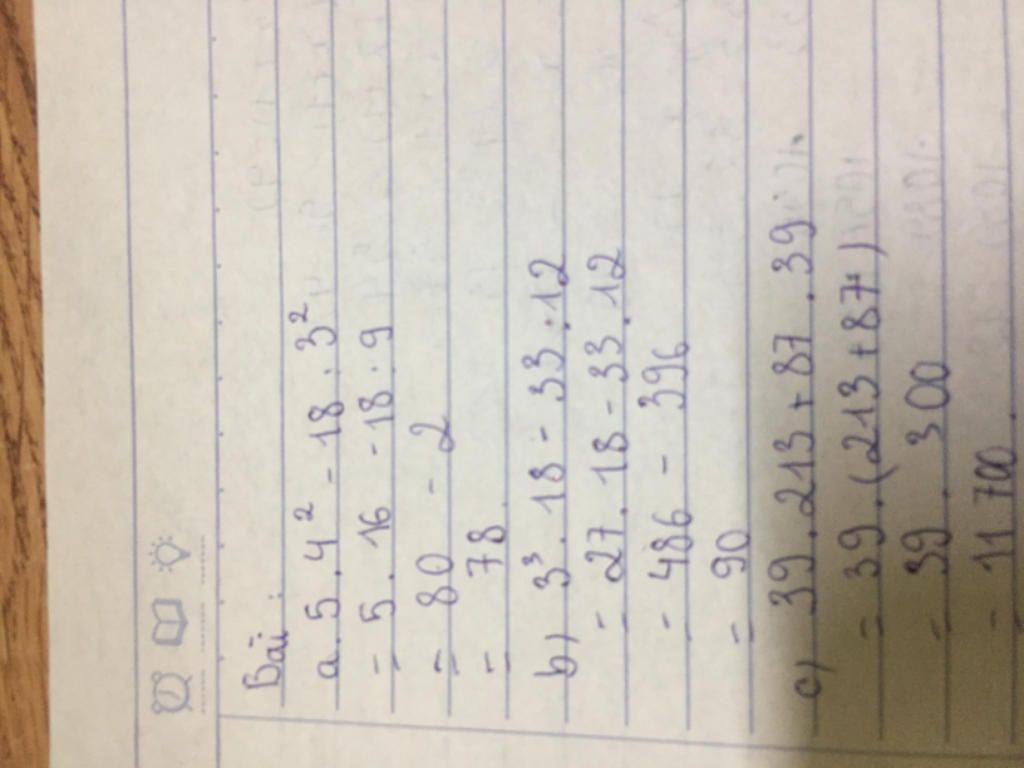 Bài:
a. 5 . 4² - 18 : 3²
= 5 . 16 - 18 : 9
= 80 - 2
= 78.
b) 3³ . 18 - 33 . 12
= 27 . 18 - 33 . 12
= 486 - 396
= 90
c) 39 . 213 + 87 . 39
= 39 . (213 + 87)
= 39 . 300
= 11 700.